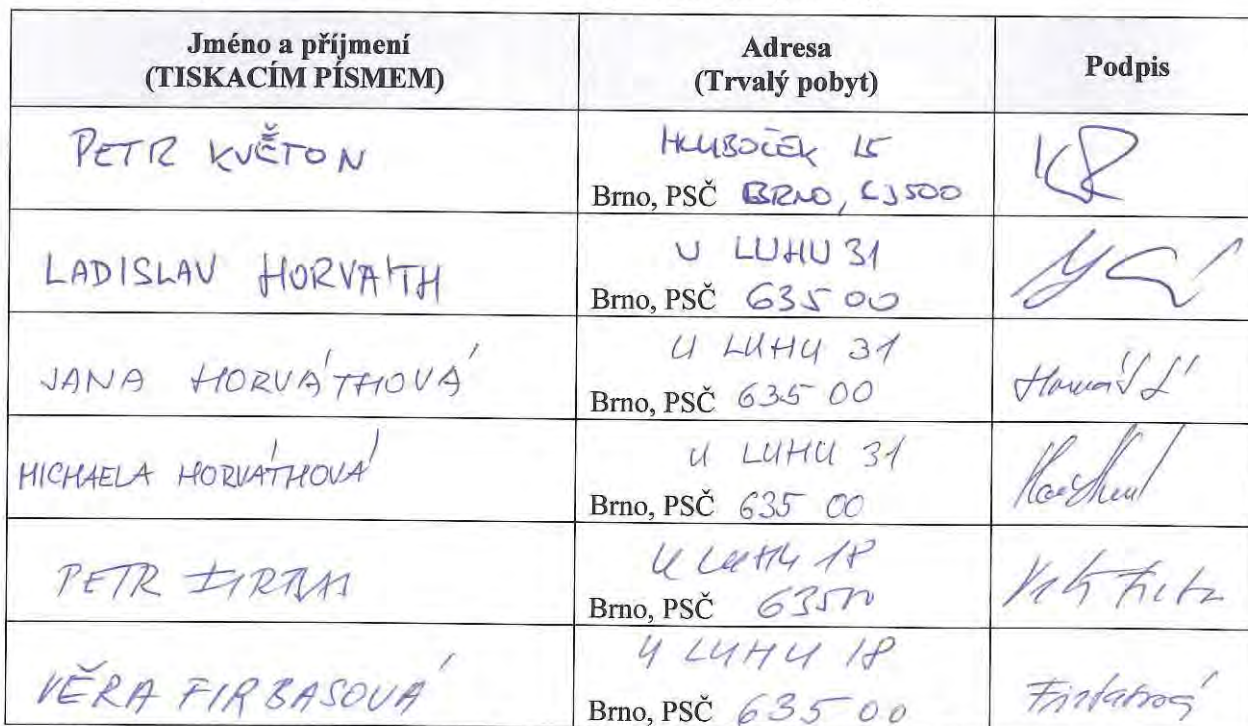 Jméno a příjmení
(TISKACÍM PÍSMEM)
Adresa
(Trvalý pobyt)
Podpis
PETR KVĚTON
HLUBOČEK 15
Brno, PSČ BRNO, 63500
LADISLAV HORVÁTH
U LUHU 31
Brno, PSČ 635 00
JANA HORVÁTHOVÁ
U LUHU 31
Brno, PSČ 635 00
MICHAELA HORVÁTHOVÁ
U LUHU 31
Brno, PSČ 635 00
PETR FIRBAS
U LUHU 18
Brno, PSČ 63500
VĚRA FIRBASOVÁ
U LUHU 18
Brno, PSČ 635 00
Firbasová